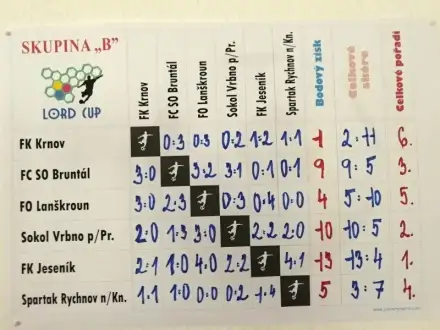 SKUPINA „B"
LORD CUP
FK Krnov
FC SO Bruntál
FO Lanškroun
Sokol Vrbno p/Pr.
FK Jeseník
Spartak Rychnov n/Kn.
Bodový zisk
Celkové skóre
Celkové pořadí
FK Krnov 0:3 0:3 0:2 1:2 1:1 1 2:11 6.
FC SO Bruntál 3:0 3:2 3:1 0:1 0:1 9 9:5 3.
FO Lanškroun 3:0 2:3 0:3 0:4 0:0 4 5:10 5.
Sokol Vrbno p/Pr. 2:0 1:3 3:0 2:2 2:0 10 10:5 2.
FK Jeseník 2:1 1:0 4:0 2:2 4:1 13 13:4 1.
Spartak Rychnov n/Kn. 1:1 1:0 0:0 0:2 1:4 5 3:7 4.